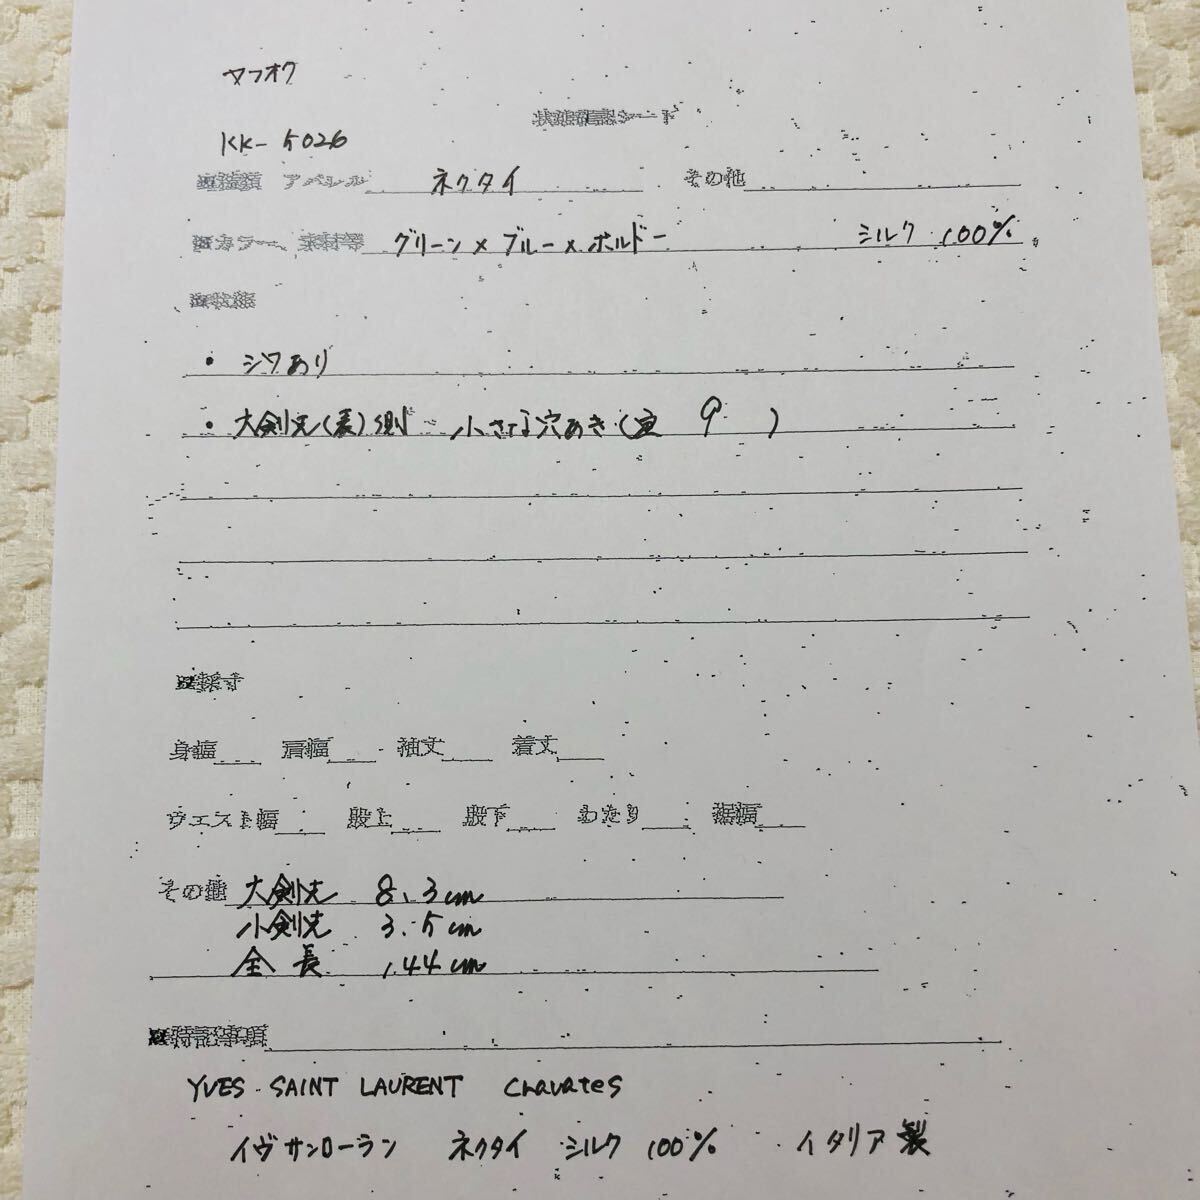 ヤフオク
状態確認シート
KK- 5026
■種類 アパレル ネクタイ その他
■カラー、素材等 グリーン×ブルー×ボルドー シルク 100%
■状態
・シワあり
・大剣先(表)側 小さな穴あき( 9 )
■採寸
身幅 肩幅 袖丈 着丈
ウエスト幅 股上 股下 わたり 裾幅
その他 大剣先 8.3cm
小剣先 3.5cm
全長 144cm
■特記事項
YVES SAINT LAURENT Cravates
イヴサンローラン ネクタイ シルク 100% イタリア製